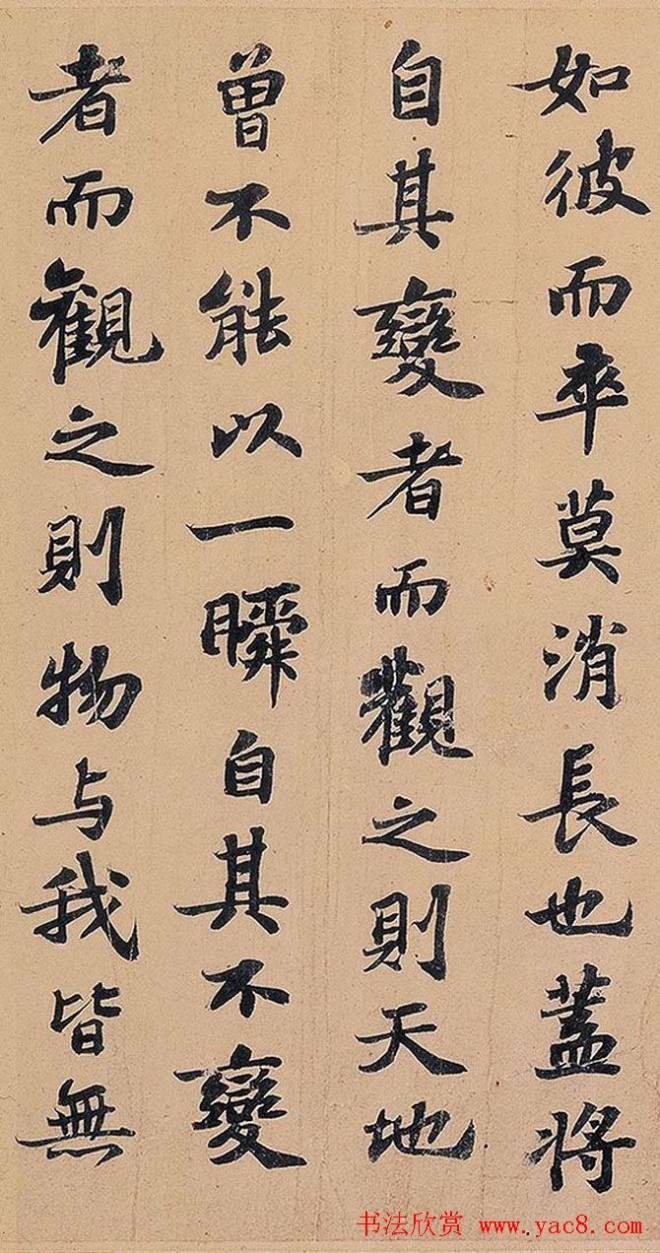 如彼而卒莫消長也蓋將
自其變者而觀之則天地
曾不能以一瞬自其不變
者而觀之則物与我皆無
书法欣赏 www.yac8.com